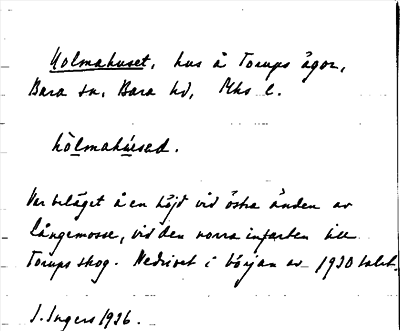 Holmahuset, hus å Torups ägor,
Bara sn, Bara hd, Mhs l.
hòlmahúsad.
Var beläget å en höjd vid östra änden av
långemosse, vid den norra infarten till
Torups skog. Nedrivet i början av 1920 talet.
I. Ingers 1926.